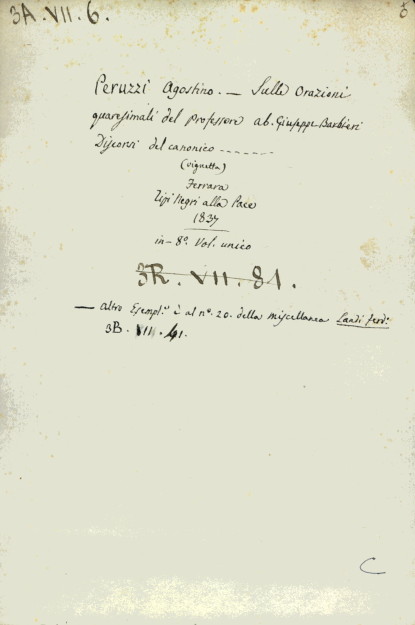 3A.VII.6.
Peruzzi Agostino. — Sulle Orazioni
quaresimali del Professore ab. Giuseppe Barbieri
Discorsi del canonico -------
(vignetta)
Ferrara
Tipi Negri alla Pace
1837
in-8º. Vol. unico
3R. VII. 81.
— Altro Esempl.e è al nº. 20. della miscellanea Landi ferd:
3B. VII. 41.
C